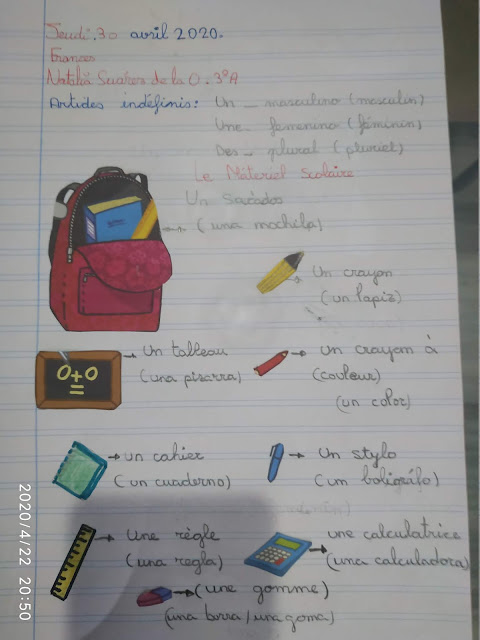 Jeudi.30 avril 2020.
Frances
Natalia Suares de la O. 3ºA
Artides indéfinis: Un _ masculino (masculin)
Une _ femenino (féminin)
Des _ plural (pluriel)
Le Máteriel Scolaire
Un Sacàdos
(una mochila)
Un crayon
(un lapiz)
Un tableau
(una pizarra)
Un crayom à
(couleur)
(un color)
0+0
=
un cahier
(un cuaderno)
Un stylo
(um boligráfo)
Une règle
(una regla)
une calculatrice
(una calculadora)
(une gomme)
(una borra/una goma)
2020/4/22 20:50